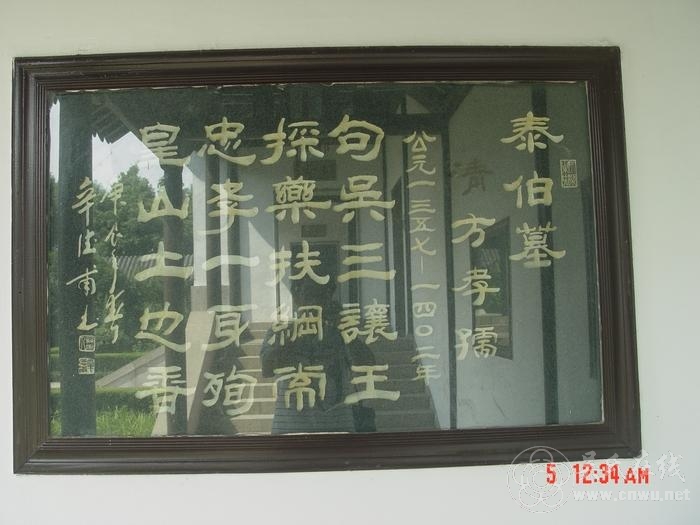 泰伯墓
清 方孝孺
公元一三五七—一四〇二年
句吴三讓王
採藥扶綱常
忠孝一身殉
皇山土也香
5 12:34 AM
吴氏在线
www.cnwu.net